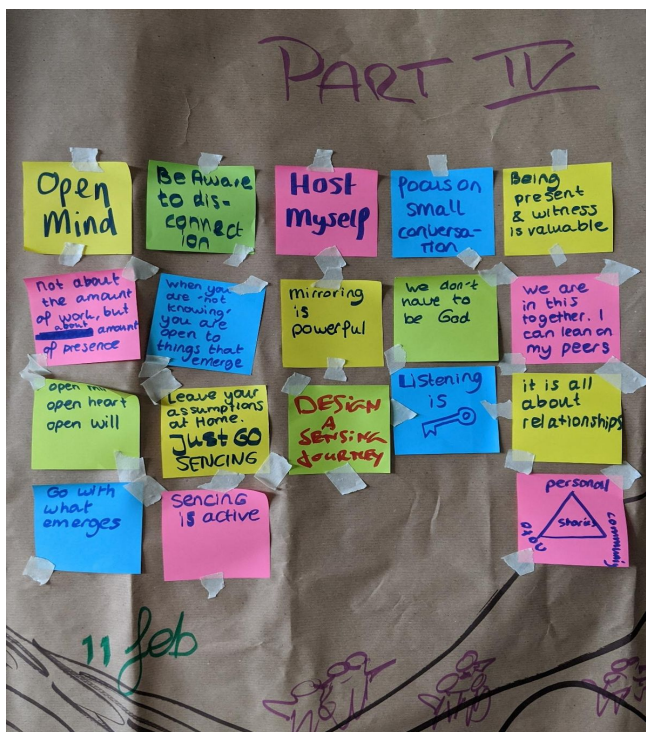 PART IV
Open
Mind
Be Aware
to dis-
connect
ion
Host
Myself
Focus on
small
conversa-
tion
Being
present
& witness
is valuable
not about
the amount
of work, but
about amount
of presence
when you
are 'not
knowing'
you are
open to
things that
emerge
mirroring
is
powerful
we don't
have to
be God
we are
in this
together. I
can lean on
my peers
open
open heart
open will
Leave your
assumptions
at Home.
Just GO
SENCING
DESIGN
A
SENSING
JOURNEY
Listening
is
it is all
about
relationships
Go with
what
emerges
Sencing
is active
personal
stories
community
11 feb